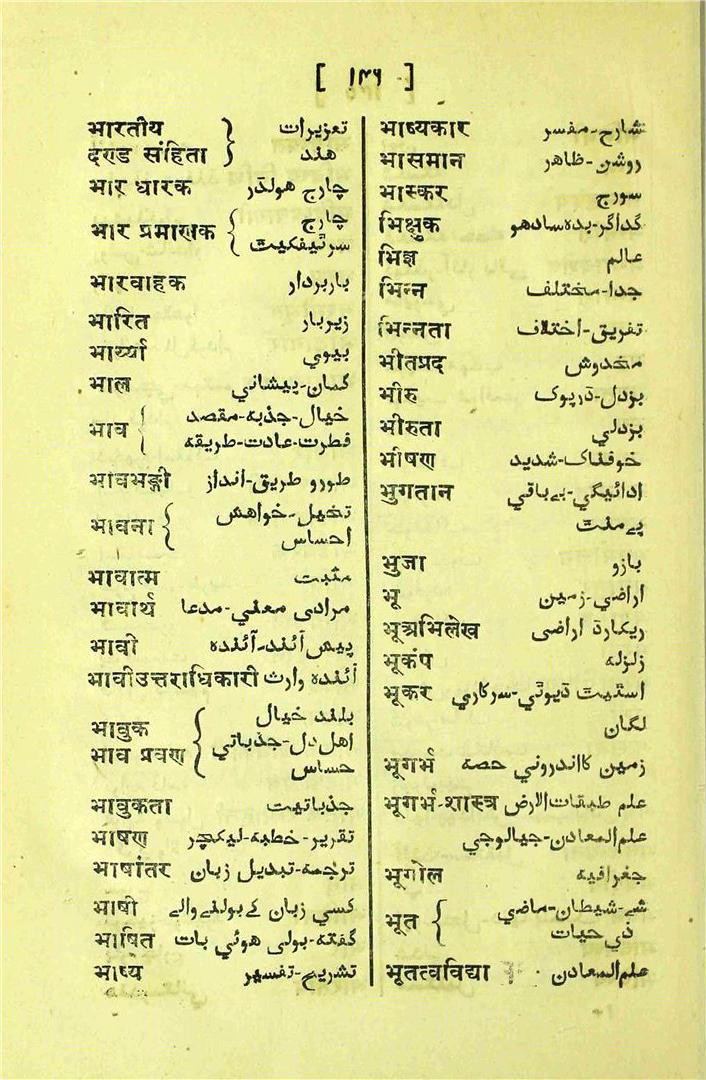 [ ۱۳۶ ]
भारतीय تعزیرات
दण्ड संहिता ھند
भार धारक چارج ھولڈر
भार प्रमाणक چارج
سرٹیفکیٹ
भारवाहक باربردار
भारित زیربار
भार्य्या بیوي
भाल گمان-پیشاني
भाव خیال-جذبہ-مقصد
فطرت-عادت-طریقہ
भावभङ्गी طورو طریق-انداز
भावना تخیل-خواھش
احساس
भावात्म مثبت
भावार्थ مرادی معني-مدعا
भावी پیش آئند-آئندہ
भावीउत्तराधिकारी آئندہ وارث
भावुक بلند خیال
भाव प्रवण اھل دل-جذباتي
حساس
भावुकता جذباتیت
भाषण تقریر-خطبہ-لیکچر
भाषांतर ترجمہ-تبدیل زبان
भाषी کسي زبان کے بولنے والے
भाषित گفتہ-بولی ھوئي بات
भाष्य تشریح-تفسیر
भाष्यकार شارح-مفسر
भासमान روشن-ظاھر
भास्कर سورج
भिक्षुक گداگر-بدہ سادھو
भिज्ञ عالم
भिन्न جدا-مختلف
भिन्नता تفریق-اختلاف
भीतप्रद مخدوش
भीरु بزدل-ڈرپوک
भीरुता بزدلي
भीषण خوفناک-شدید
भुगतान ادائیگي-بےباقي
پےمنٹ
भुजा بازو
भू اراضي-زمین
भूअभिलेख ریکارڈ اراضی
भूकंप زلزلہ
भूकर اسٹیٹ ڈیوٹي-سرکاري
لگان
भूगर्भ زمین کااندروني حصہ
भूगर्भ-शास्त्र علم طبقات الارض
علم المعادن-جیالوجي
भूगोल جغرافیہ
भूत شے-شیطان-ماضي
ذي حیات
भूतत्वविद्या علم المعادن